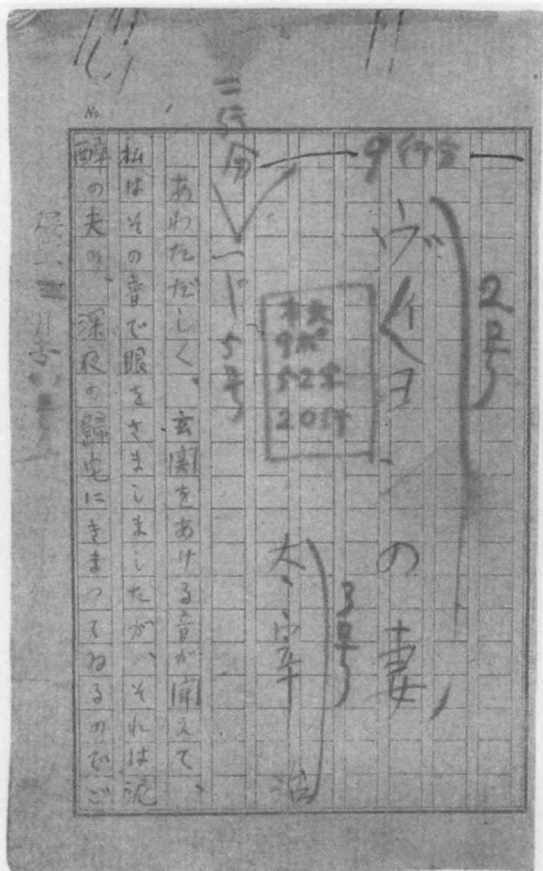 No.
9行古
2号
ヴィヨンの妻
3号
太宰治
本文
9ポ
52字
20行
二行分
一
5号
あわただしく、玄関をあける音が聞えて、
私はその音で眼をさましましたが、それは泥
酔の夫の、深夜の歸宅にきまつてゐるのでご